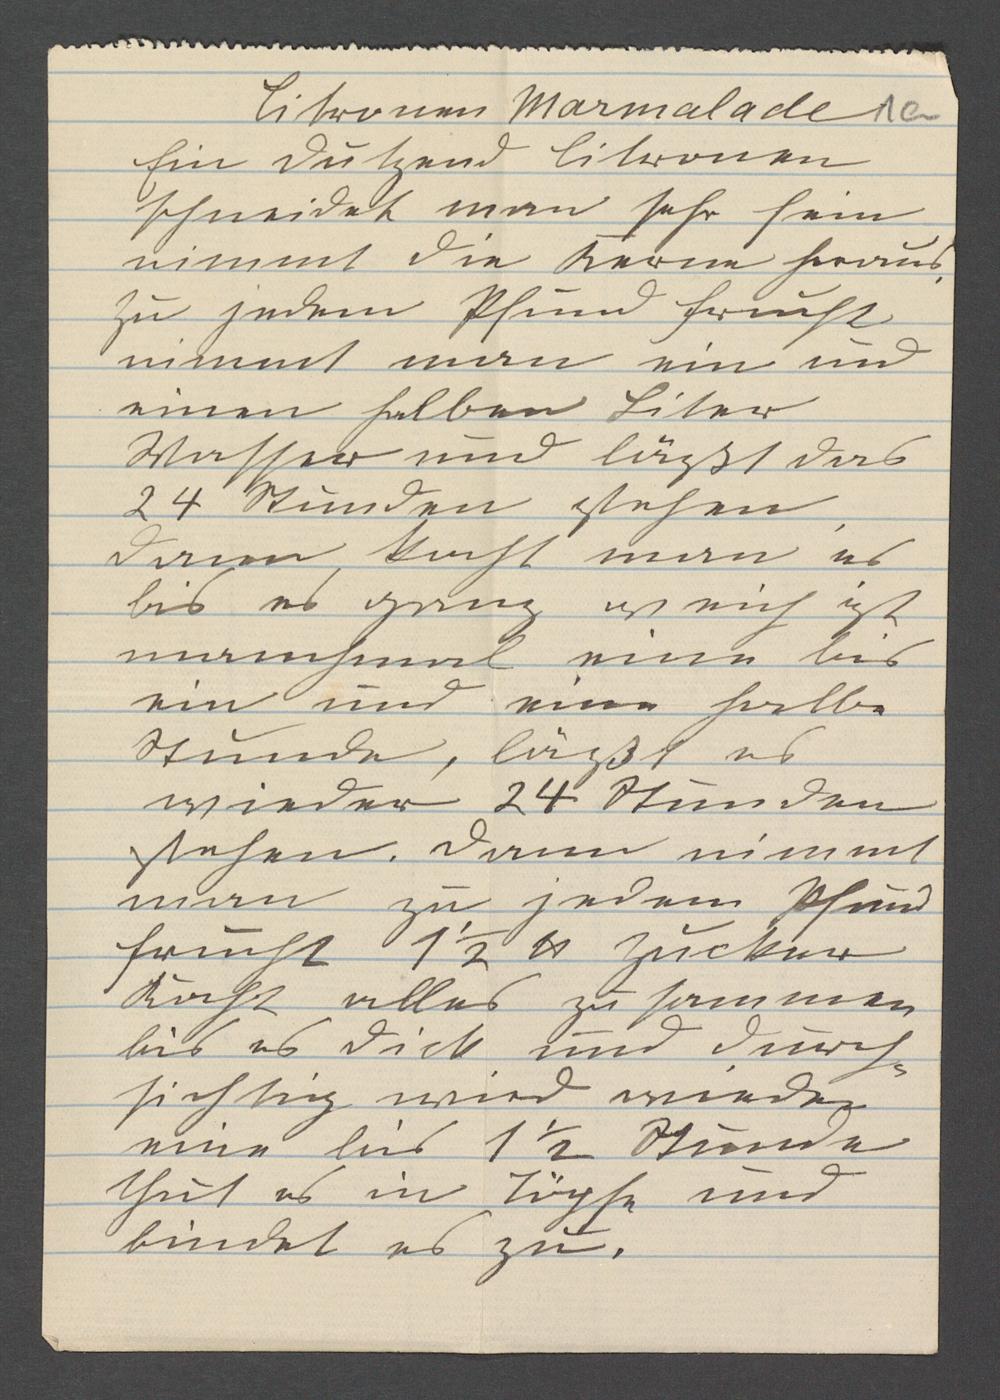 Citronen Marmalade 1a
Ein Dutzend Citronen
schneidet man sehr fein
nimmt die Kerne heraus,
zu jedem Pfund Frucht
nimmt man ein und
einen halben Liter
Wasser und läßt das
24 Stunden stehen,
dann kocht man es
bis es ganz weich ist
manchmal eine bis
ein und eine halbe
Stunde, läßt es
wieder 24 Stunden
stehen. Dann nimmt
man zu jedem Pfund
Frucht 1 1/2 ℔ Zucker
Kocht alles zusammen
bis es dick und durch-
sichtig wird wieder
eine bis 1 1/2 Stunde
thut es in Töpfe und
bindet es zu.